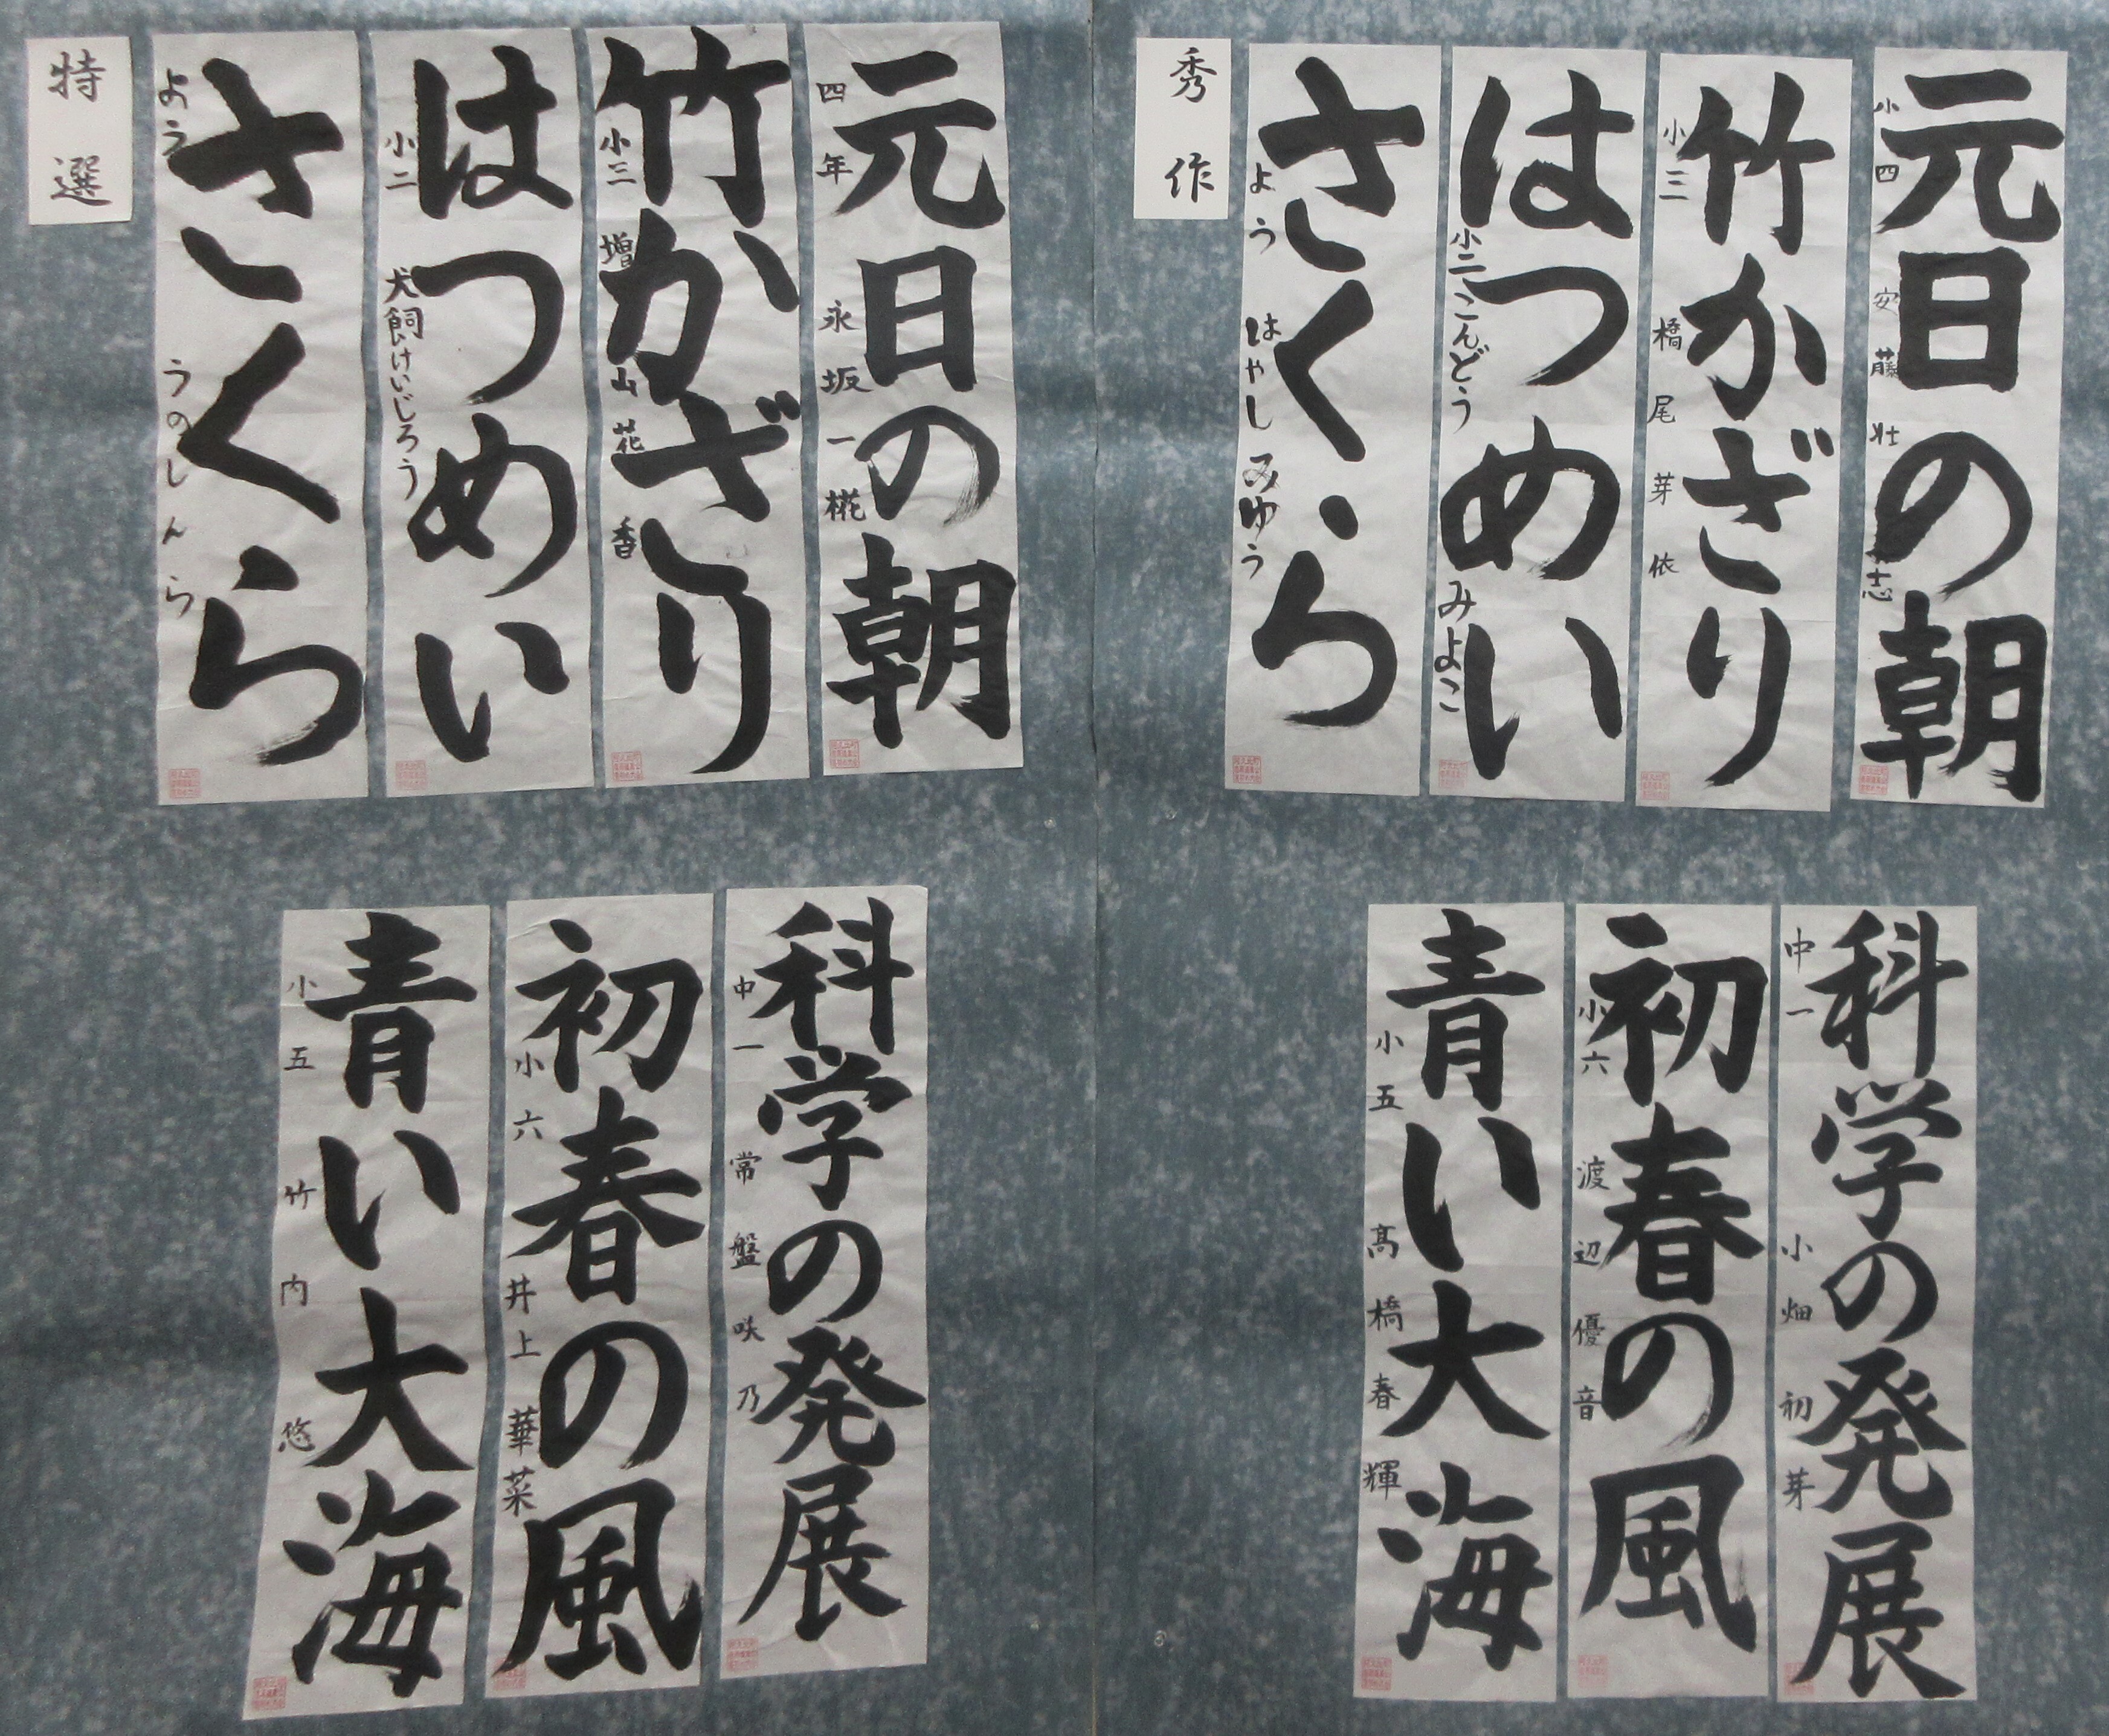 特選
元日の朝
四年 永坂一椛
竹かざり
小三 増山花香
はつめい
小二 犬飼けいじろう
さくら
よう うのしんら
科学の発展
中一 常盤咲乃
初春の風
小六 井上華菜
青い大海
小五 竹内悠
秀作
元日の朝
小四 安藤壮志
竹かざり
小三 橋尾芽依
はつめい
小二 こんどうみよこ
さくら
よう はやしみゆう
科学の発展
中一 小畑初芽
初春の風
小六 渡辺優音
青い大海
小五 髙橋春輝